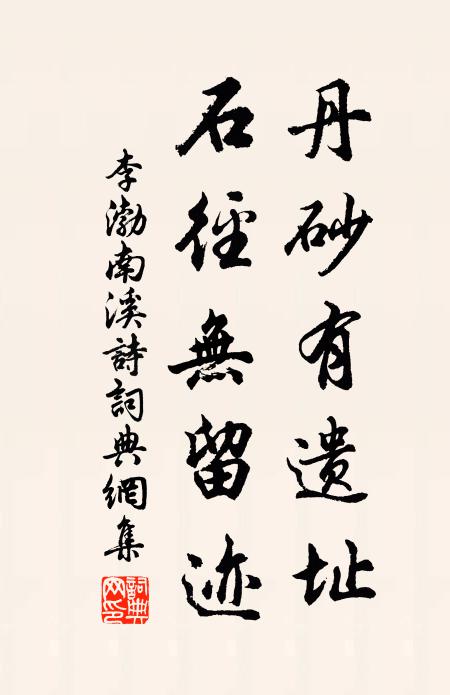 丹砂有遗址
石徑無留迹
李渤南溪詩詞典網集
詞典网印